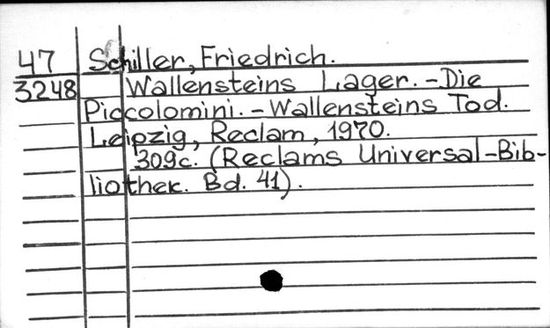 47 Schiller, Friedrich.
3248 Wallensteins Lager. - Die
Piccolomini. - Wallensteins Tod.
Leipzig, Reclam, 1970.
309c. (Reclams Universal-Bib-
liothek. Bd. 41).